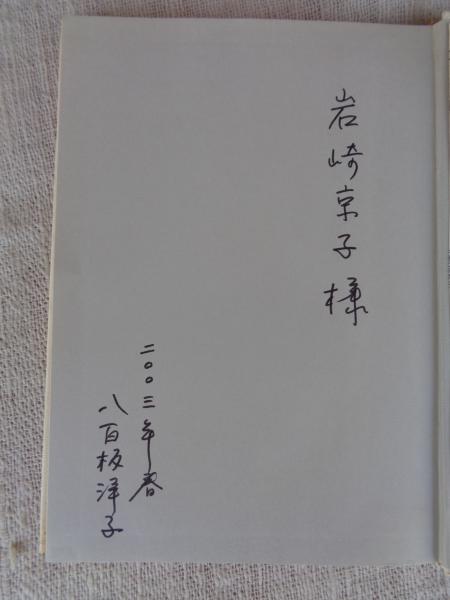 岩崎京子様
二〇〇三年春
八百板洋子